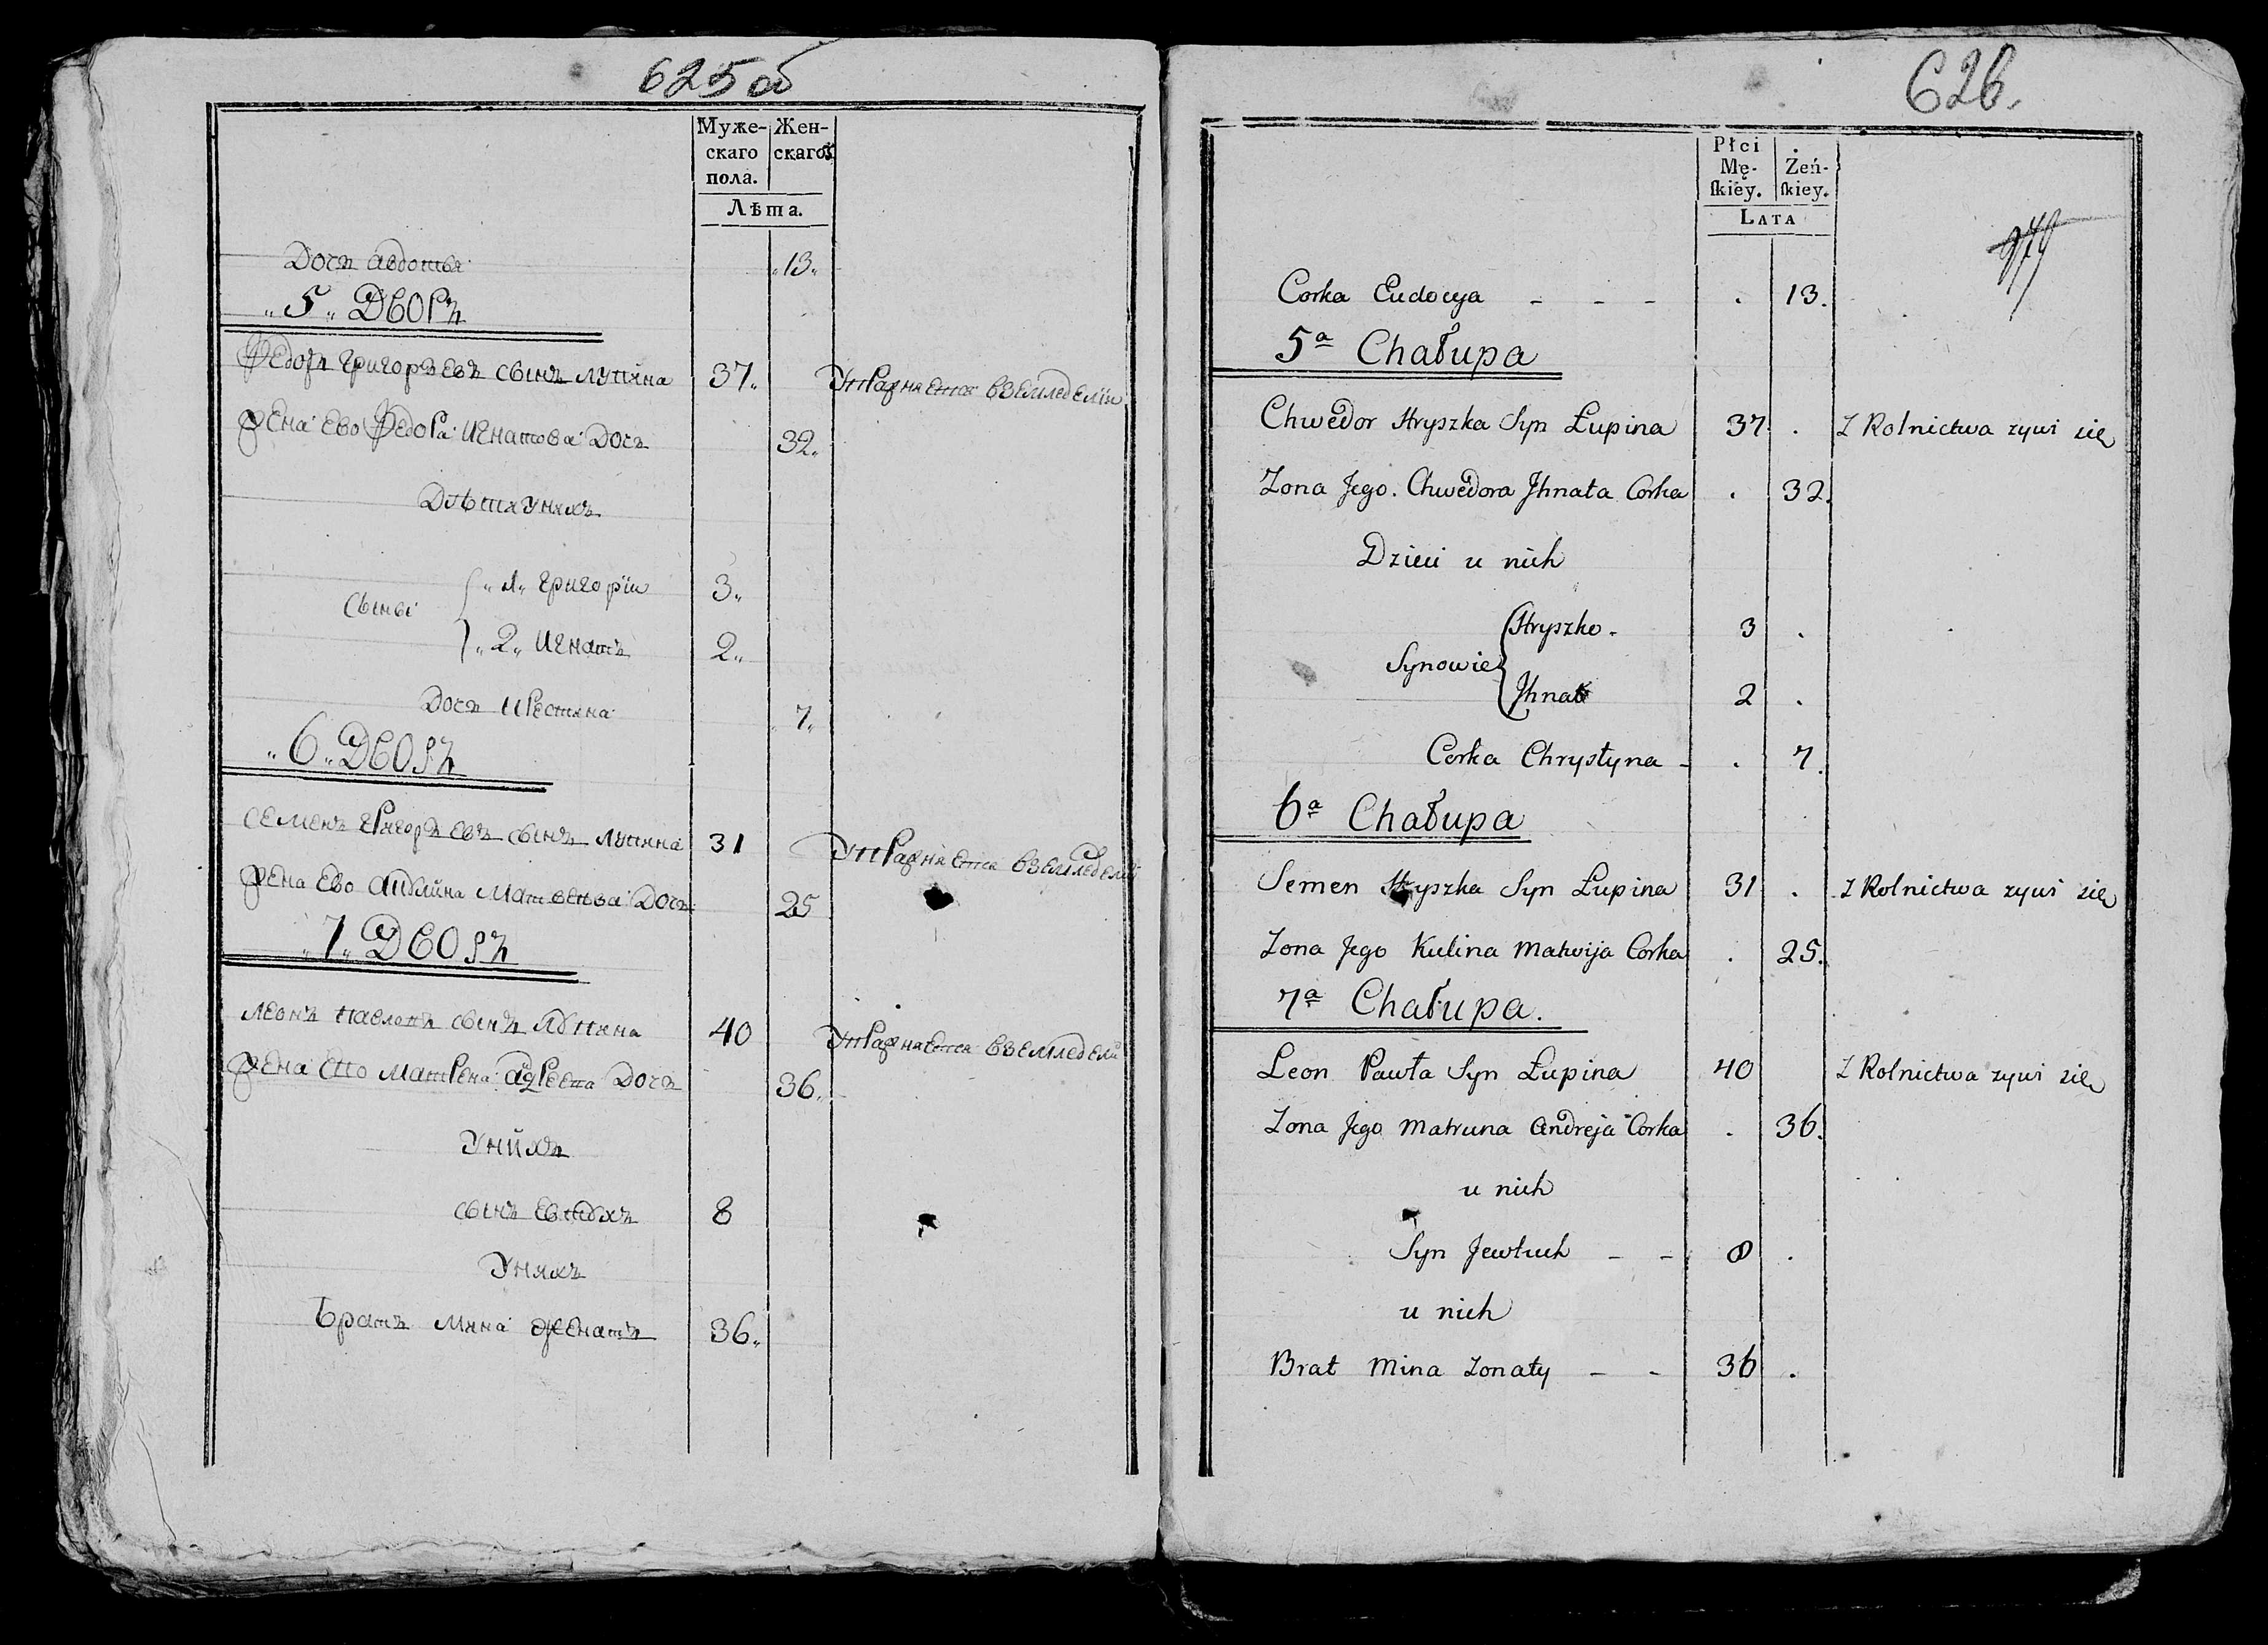 625 об
Муже-
скаго
пола.
Жен-
скаго
Лѣта.
Дочъ Авдотья 13
5 Дворъ
Федоръ Григорьевъ сынъ Лупина 37 Упражняется в земледелии
Жена ево Федора Игнатова дочъ 32
Дѣти у нихъ
Сыны
1 Григории 3
2 Игнатъ 2
Дочъ Христина 7
6 Дворъ
Семенъ Григорьевъ сынъ Лупина 31 Упражняется в земледелии
Жена ево Матвеева дочъ 25
7 Дворъ
Леонъ Павловъ сынъ Лупина 40 Упражняется в земледели
Жена ево Матрена дочъ 36
У нихъ
сынъ Евтухъ 8
У нихъ
Братъ Мина женатъ 36
626.
Płci
Mę-
ſkiey.
Żeń-
ſkiey.
Lata
Corka Eudocya - - - . 13.
5a Chałupa
Chwedor Hryszka Syn Łupina 37 . Z Rolnictwa zywi się
Zona Jego. Chwedora Jhnata Corka . 32.
Dzieci u nich
Synowie
Hryszko. 3 .
Jhnat 2 .
Corka Chrystyna - . 7.
6a Chałupa
Semen Hryszka Syn Łupina 31 . Z Rolnictwa zywi się
Zona Jego Kulina Matwija Corka . 25.
7a Chałupa.
Leon Pawła Syn Łupina 40 Z Rolnictwa zywi się
Zona Jego Matruna Andreja Corka . 36.
u nich
Syn Jewtuch - - 8 .
u nich
Brat Mina Zonaty - - 36 .